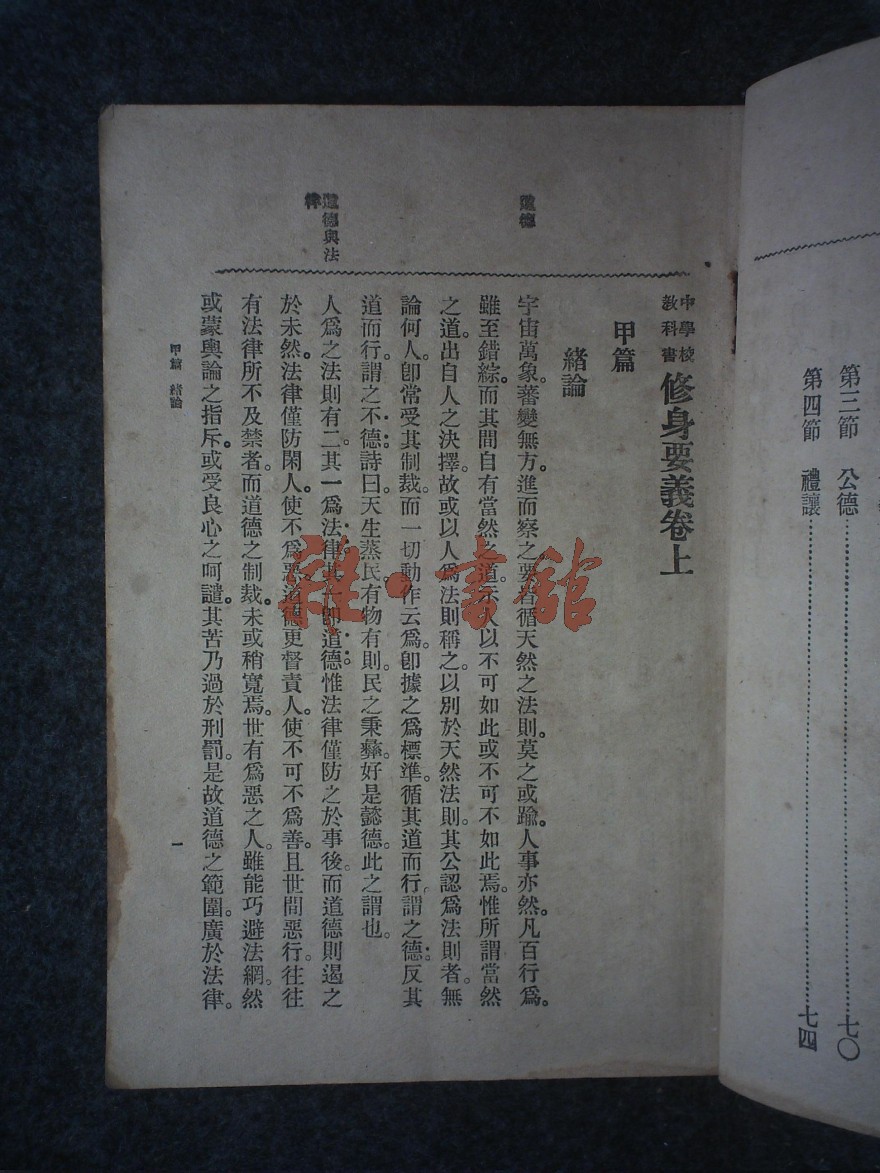 第三節 公德……七〇
第四節 禮讓……七四
中學校
教科書
修身要義卷上
甲篇
緒論
道德
宇宙萬象。蕃變無方。進而察之。要皆循天然之法則。莫之或踰。人事亦然。凡百行爲。
雖至錯綜。而其間自有當然之道。示人以不可如此或不可不如此焉。惟所謂當然
之道。出自人之決擇。故或以人爲法則稱之。以別於天然法則。其公認爲法則者。無
論何人。卽常受其制裁。而一切動作云爲。卽據之爲標準。循其道而行。謂之德。反其
道而行。謂之不德。詩曰。天生蒸民。有物有則。民之秉彝。好是懿德。此之謂也。
道德與法
律
人爲之法則有二。其一爲法律。其一卽道德。惟法律僅防之於事後。而道德則遏之
於未然。法律僅防閑人。使不爲惡。道德更督責人。使不可不爲善。且世間惡行。往往
有法律所不及禁者。而道德之制裁。未或稍寬焉。世有爲惡之人。雖能巧避法網。然
或蒙輿論之指斥。或受良心之呵譴。其苦乃過於刑罰。是故道德之範圍。廣於法律。
甲篇 緒論
一
雜·書館